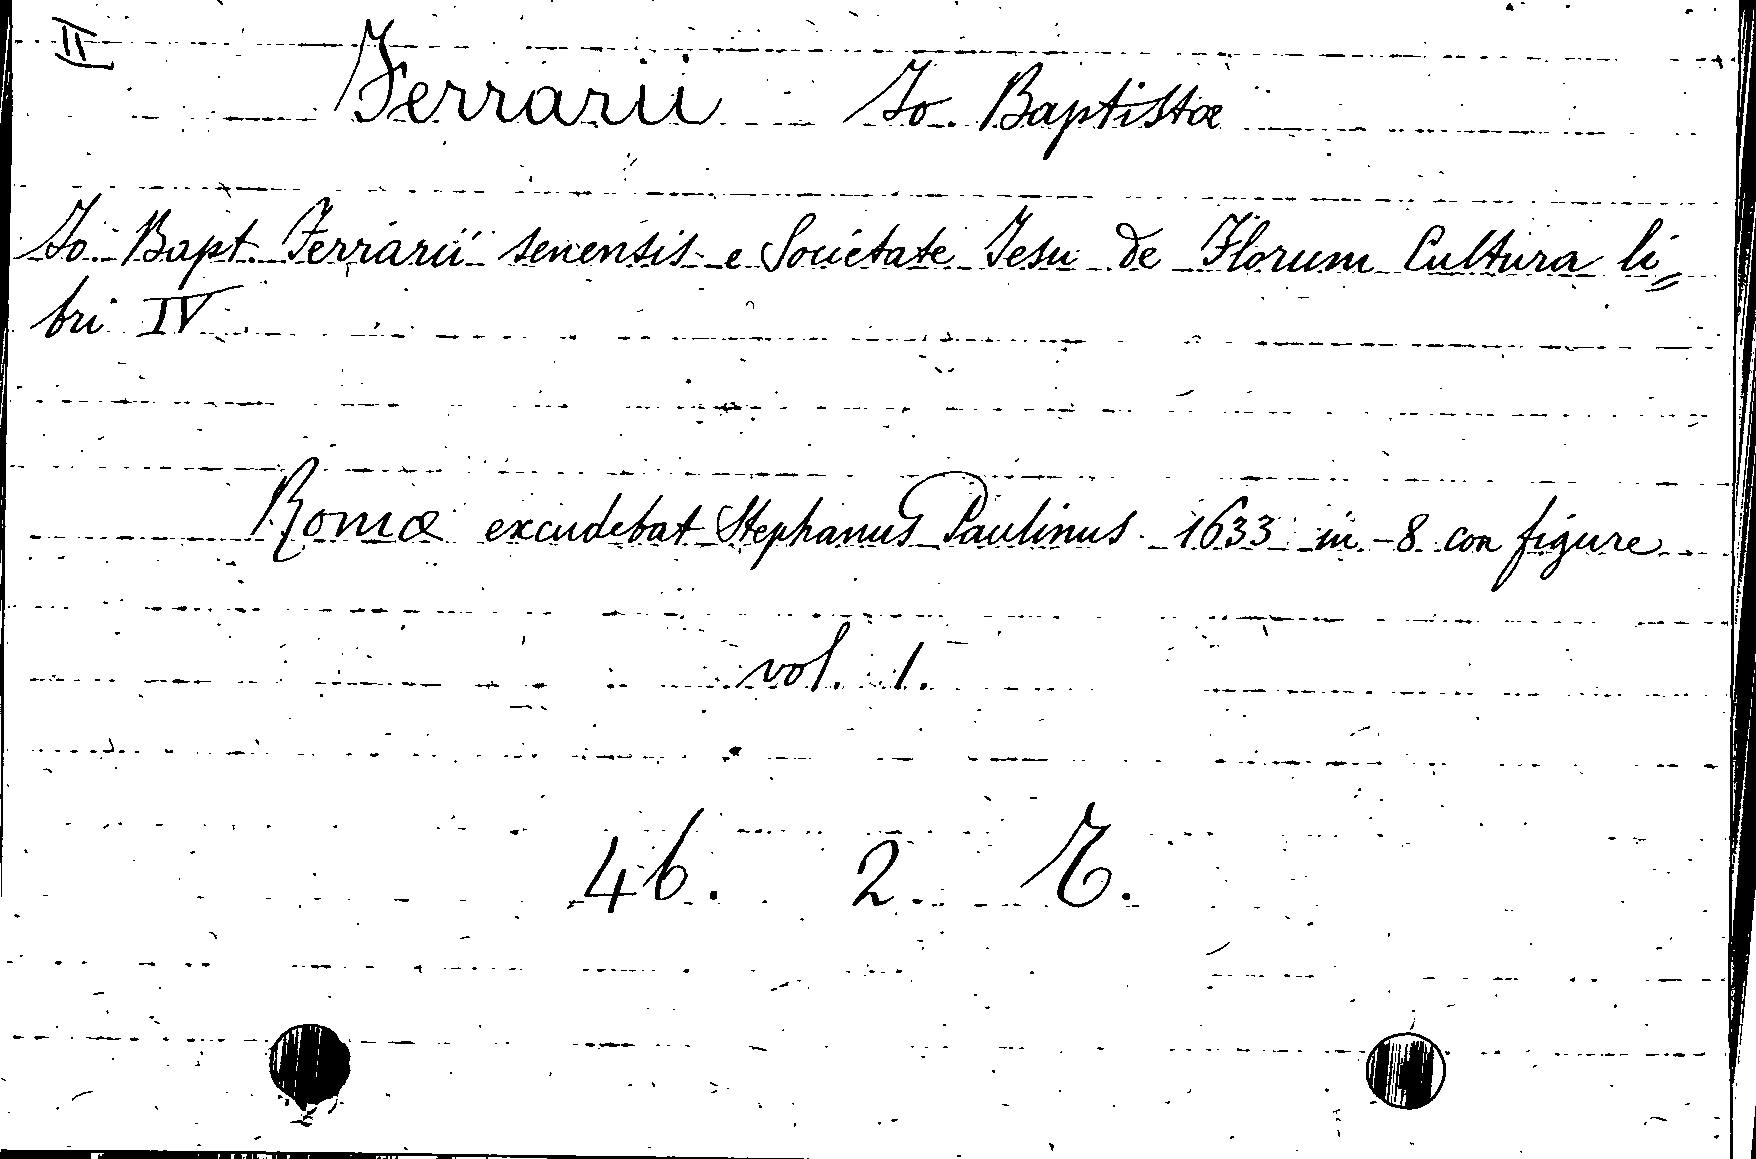 II
Ferrarii Io. Baptistæ
Io. Bapt. Ferrarii senensis e Societate Iesu de Florum Cultura li=
bri IV
Romæ excudebat Stephanus Paulinus 1633 in-8 con figure
vol. 1.
46. 2.